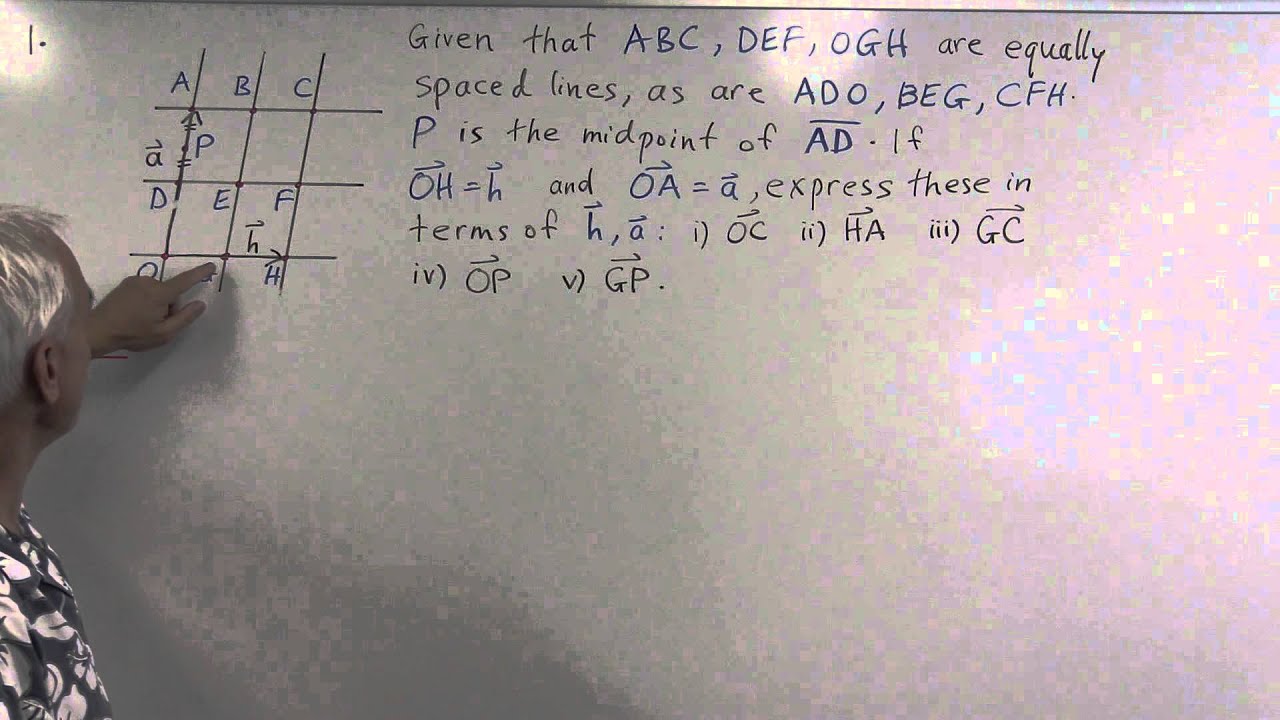 1.
A B C
P
a⃗
D E F
h⃗
O G H
Given that ABC, DEF, OGH are equally
spaced lines, as are ADO, BEG, CFH.
P is the midpoint of A̅D̅. If
O⃗H⃗ = h⃗ and O⃗A⃗ = a⃗, express these in
terms of h⃗, a⃗: i) O⃗C⃗ ii) H⃗A⃗ iii) G⃗C⃗
iv) O⃗P⃗ v) G⃗P⃗.